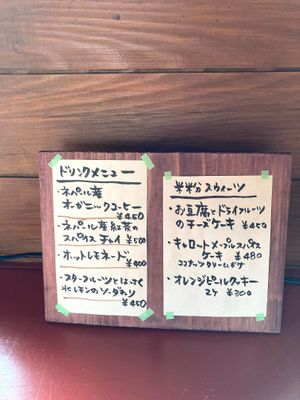 ドリンクメニュー
・ネパール産
オーガニックコーヒー
¥450
・ネパール産紅茶の
スパイス チャイ ¥500
・ホットレモネード
¥400
・スターフルーツとはっさく
とレモンのソーダわり
¥450
米粉スウィーツ
・お豆腐とドライフルーツ
のチーズケーキ ¥450
・キャロートメープルスパイス
ケーキ ¥480
ココナッツクリームがけ
・オレンジピールクッキー
2ケ ¥300